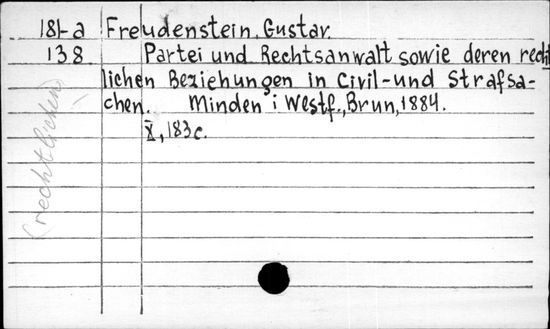 181-a Freudenstein, Gustav.
138 Partei und Rechtsanwalt sowie deren recht
lichen Beziehungen in Civil-und Strafsa-
chen. Minden i Westf., Brun, 1884.
X, 183 c.
(rechtlichen)